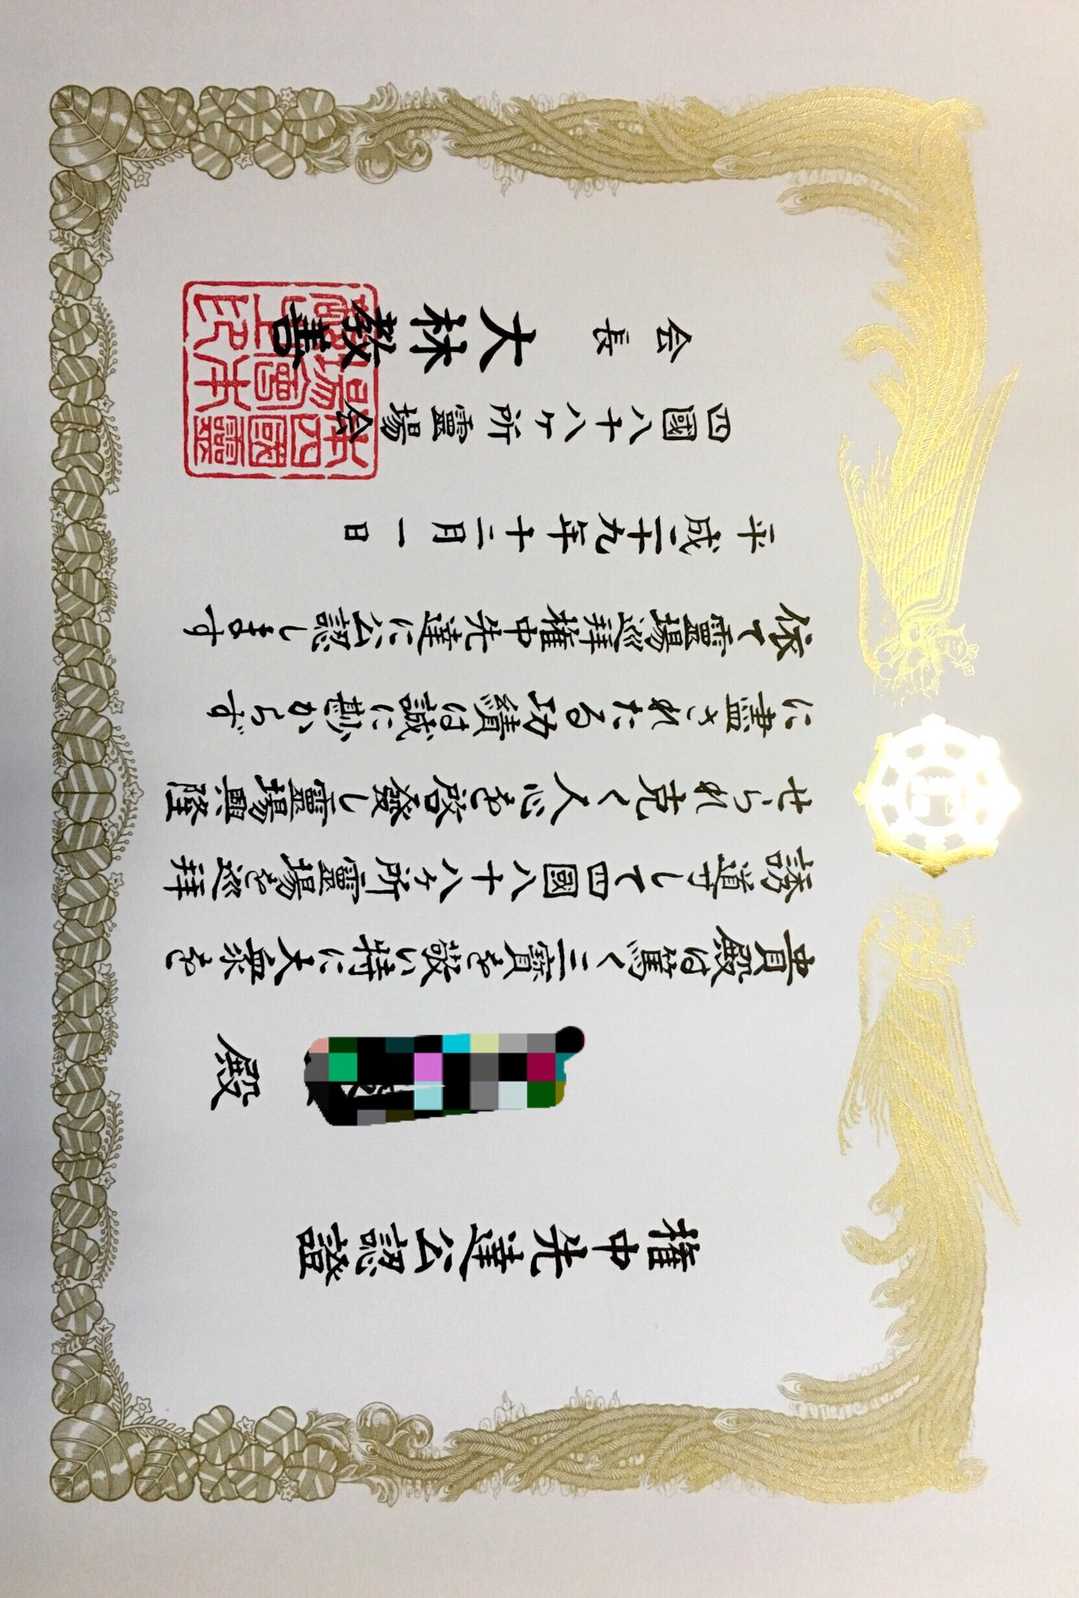 権中先達公認證
殿
貴殿は篤く三寶を敬い特に大衆を
誘導して四國八十八ヶ所靈場を巡拜
せられ克く人心を啓發し靈場興隆
に盡されたる功績は誠に尠からず
依て靈場巡拜権中先達に公認します
平成二十九年十二月一日
四國八十八ヶ所靈場会
会長 大林教善